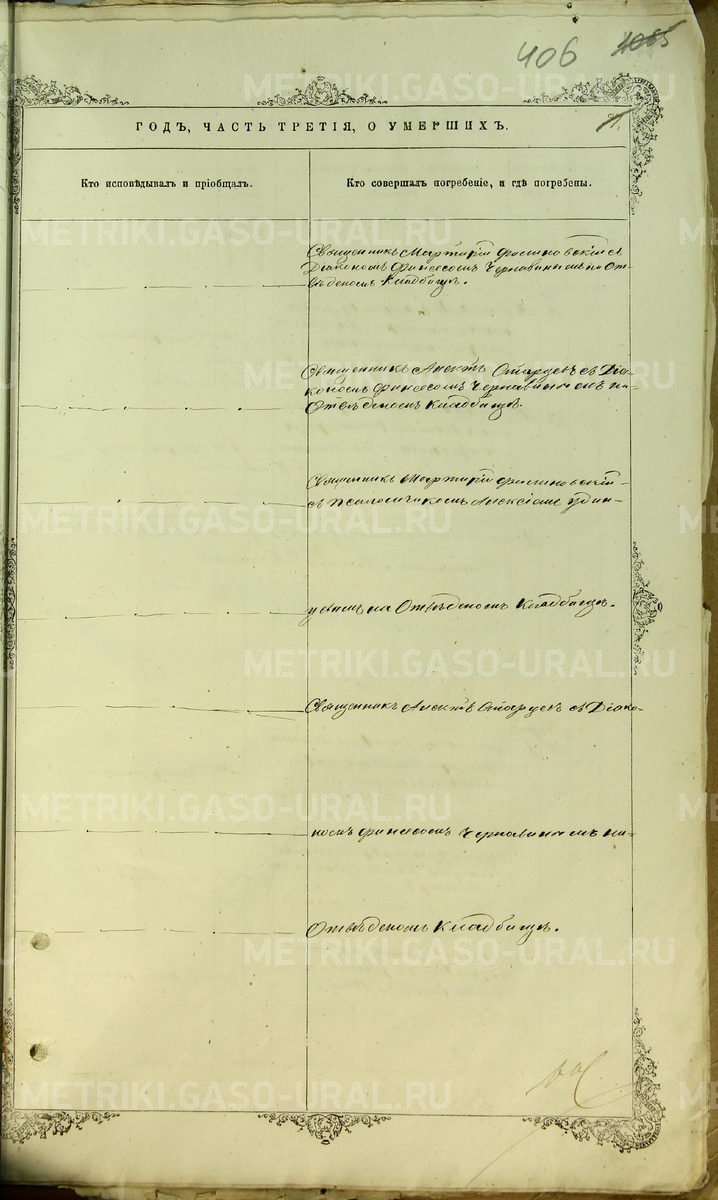 406 4065
ГОДЪ, ЧАСТЬ ТРЕТІЯ, О УМЕРШИХЪ.
Кто исповѣдывалъ и пріобщалъ.
Кто совершалъ погребеніе, и гдѣ погребены.
Священникъ Мартирій съ
Діакономъ Финеесомъ Чернавинымъ на От-
вѣденомъ Кладбищѣ.
Священникъ Старцевъ съ Діа-
кономъ Финеесомъ Чернавинымъ на
Отвѣденомъ Кладбищѣ.
Священникъ Мартирій
съ Псаломщикомъ Алексіемъ Удин-
цевымъ на Отвѣденомъ Кладбищѣ.
Священникъ Старцевъ съ Діако-
номъ Финеесомъ Чернавинымъ на
Отвѣденомъ Кладбищѣ.
METRIKI.GASO-URAL.RU